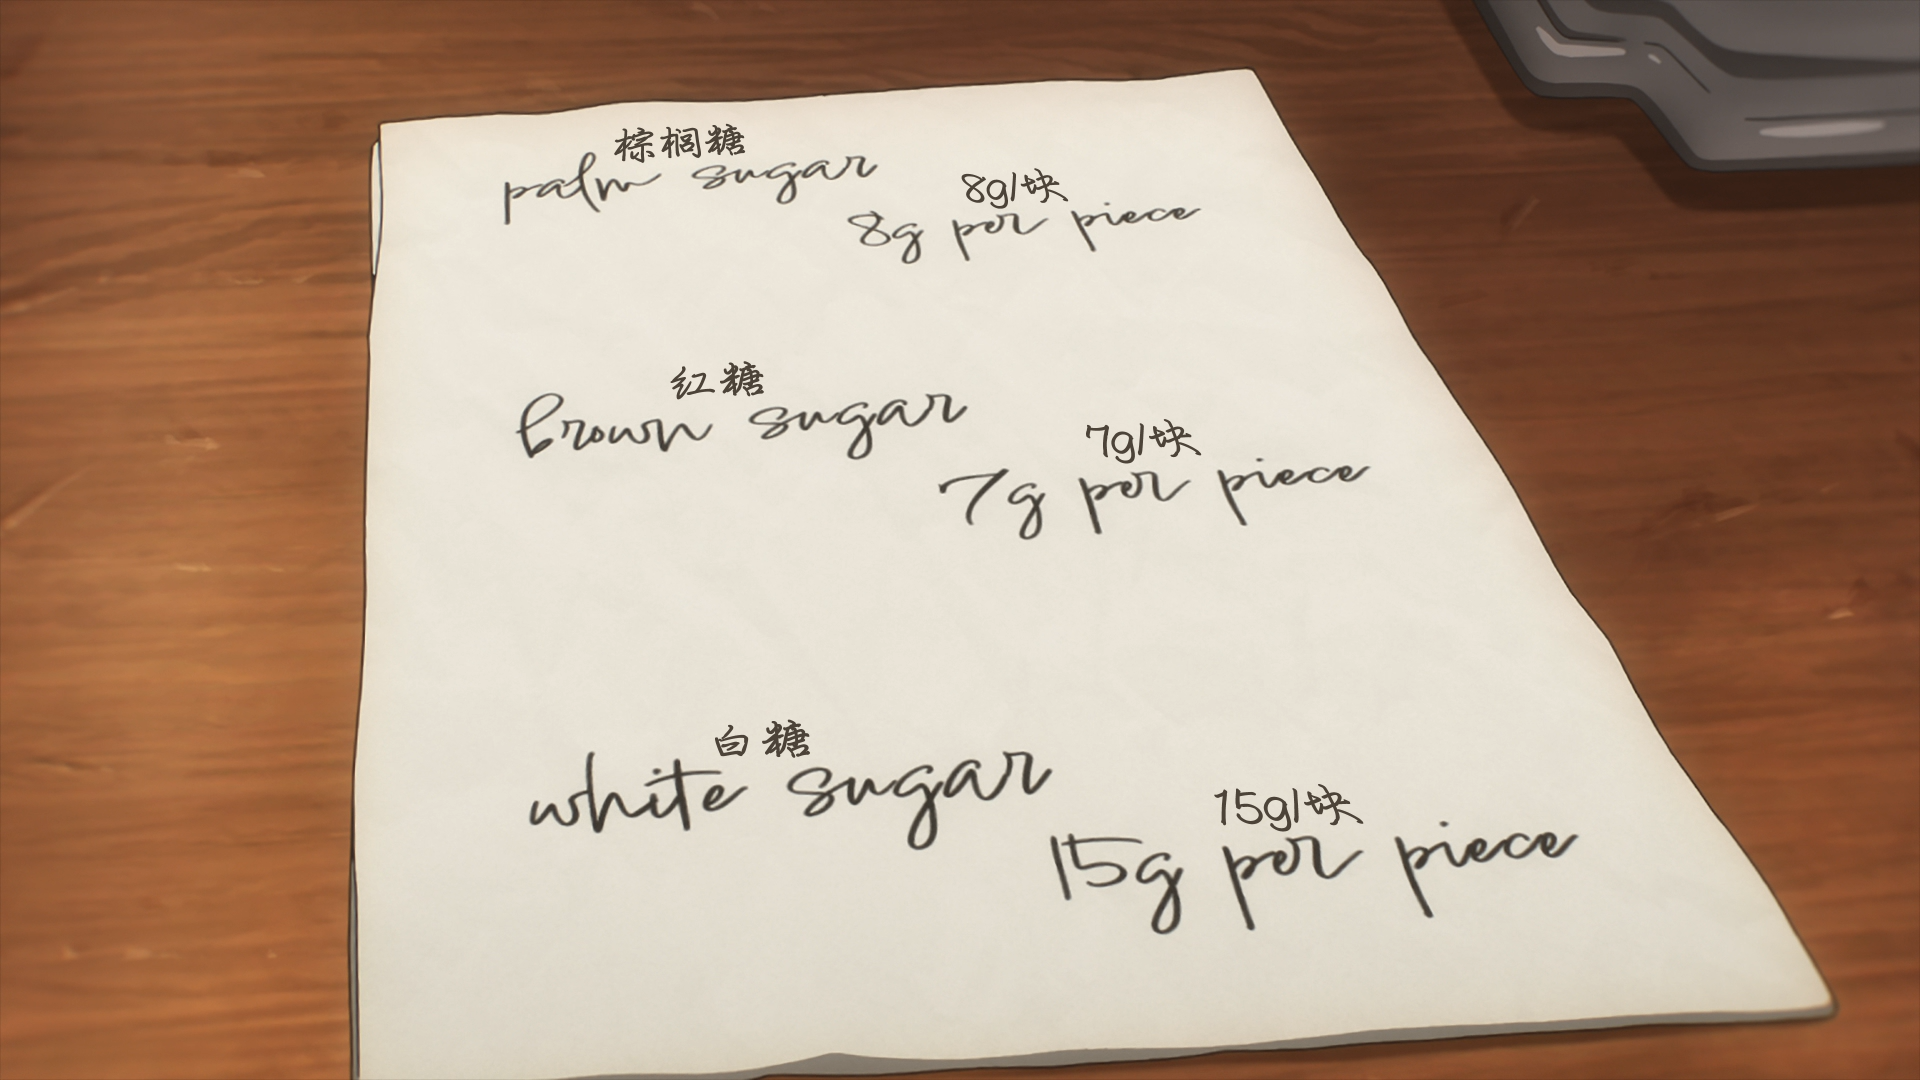 棕榈糖
palm sugar
8g/块
8g per piece
红糖
brown sugar
7g/块
7g per piece
白糖
white sugar
15g/块
15g per piece